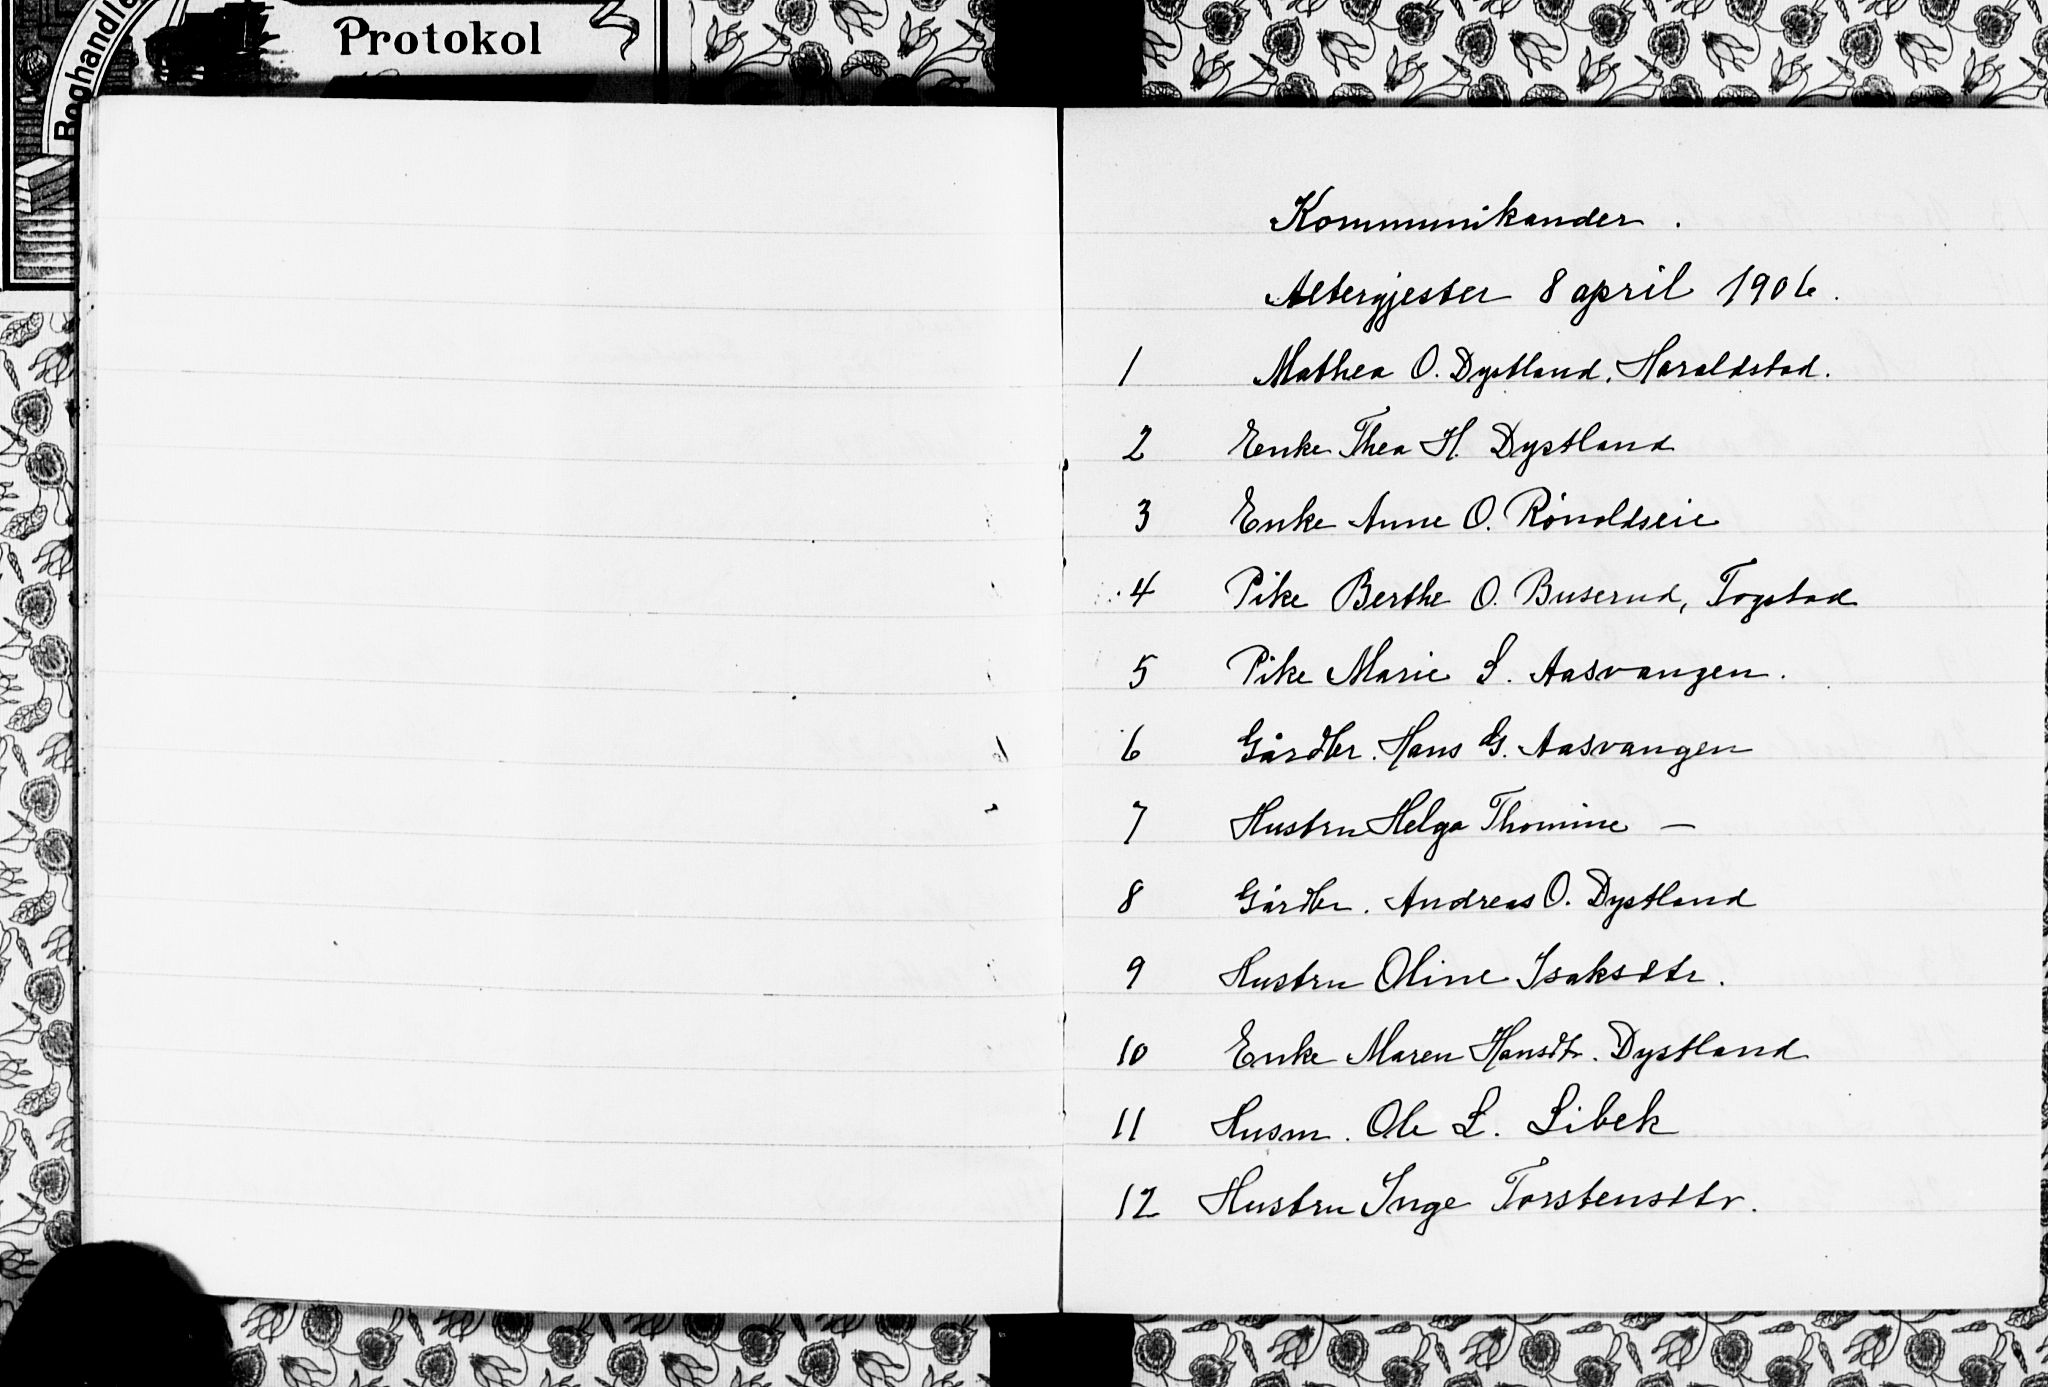 Protokol
Boghandle
Kommunikander.
Altergjester 8 april 1906.
1 Mathea O. Dystland, Haraldstad.
2 Enke Thea H. Dystland
3 Enke Anne O. Rønoldseie
4 Pike Berthe O. Buserud, Togstad
5 Pike Marie S. Aasvangen.
6 Gårdbr. Hans G. Aasvangen
7 Hustru Helga Thomine —
8 Gårdbr. Andreas O. Dystland
9 Hustru Oline Isaksdtr.
10 Enke Maren Hansdtr. Dystland
11 Husm. Ole L. Libek
12 Hustru Inge Torstensdtr.